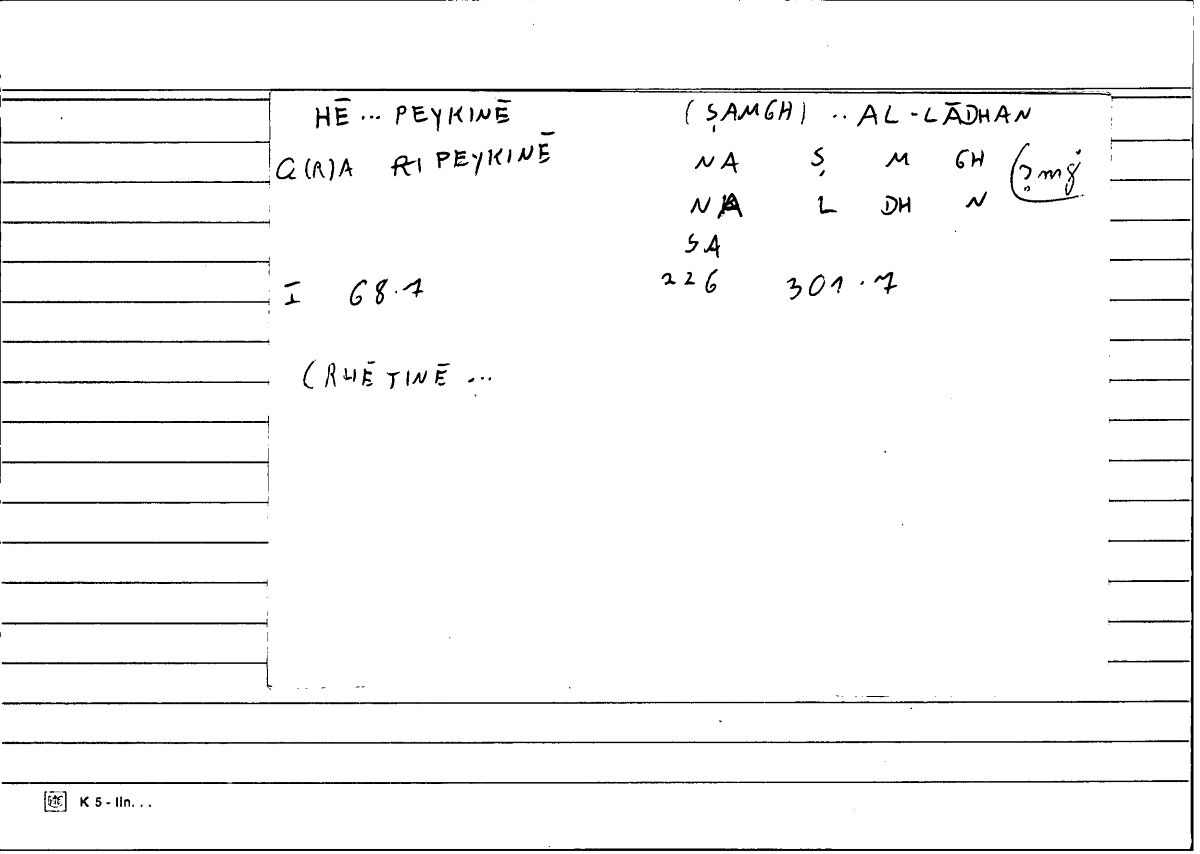 HĒ ... PEYKINĒ (ṢAMGH) .. AL-LĀDHAN
Q(R)A RI PEYKINĒ NA Ṣ M GH
NA L DH N
SA
I 68.7 226 301.7
(RHĒTINĒ ...
K 5 - lin. . .